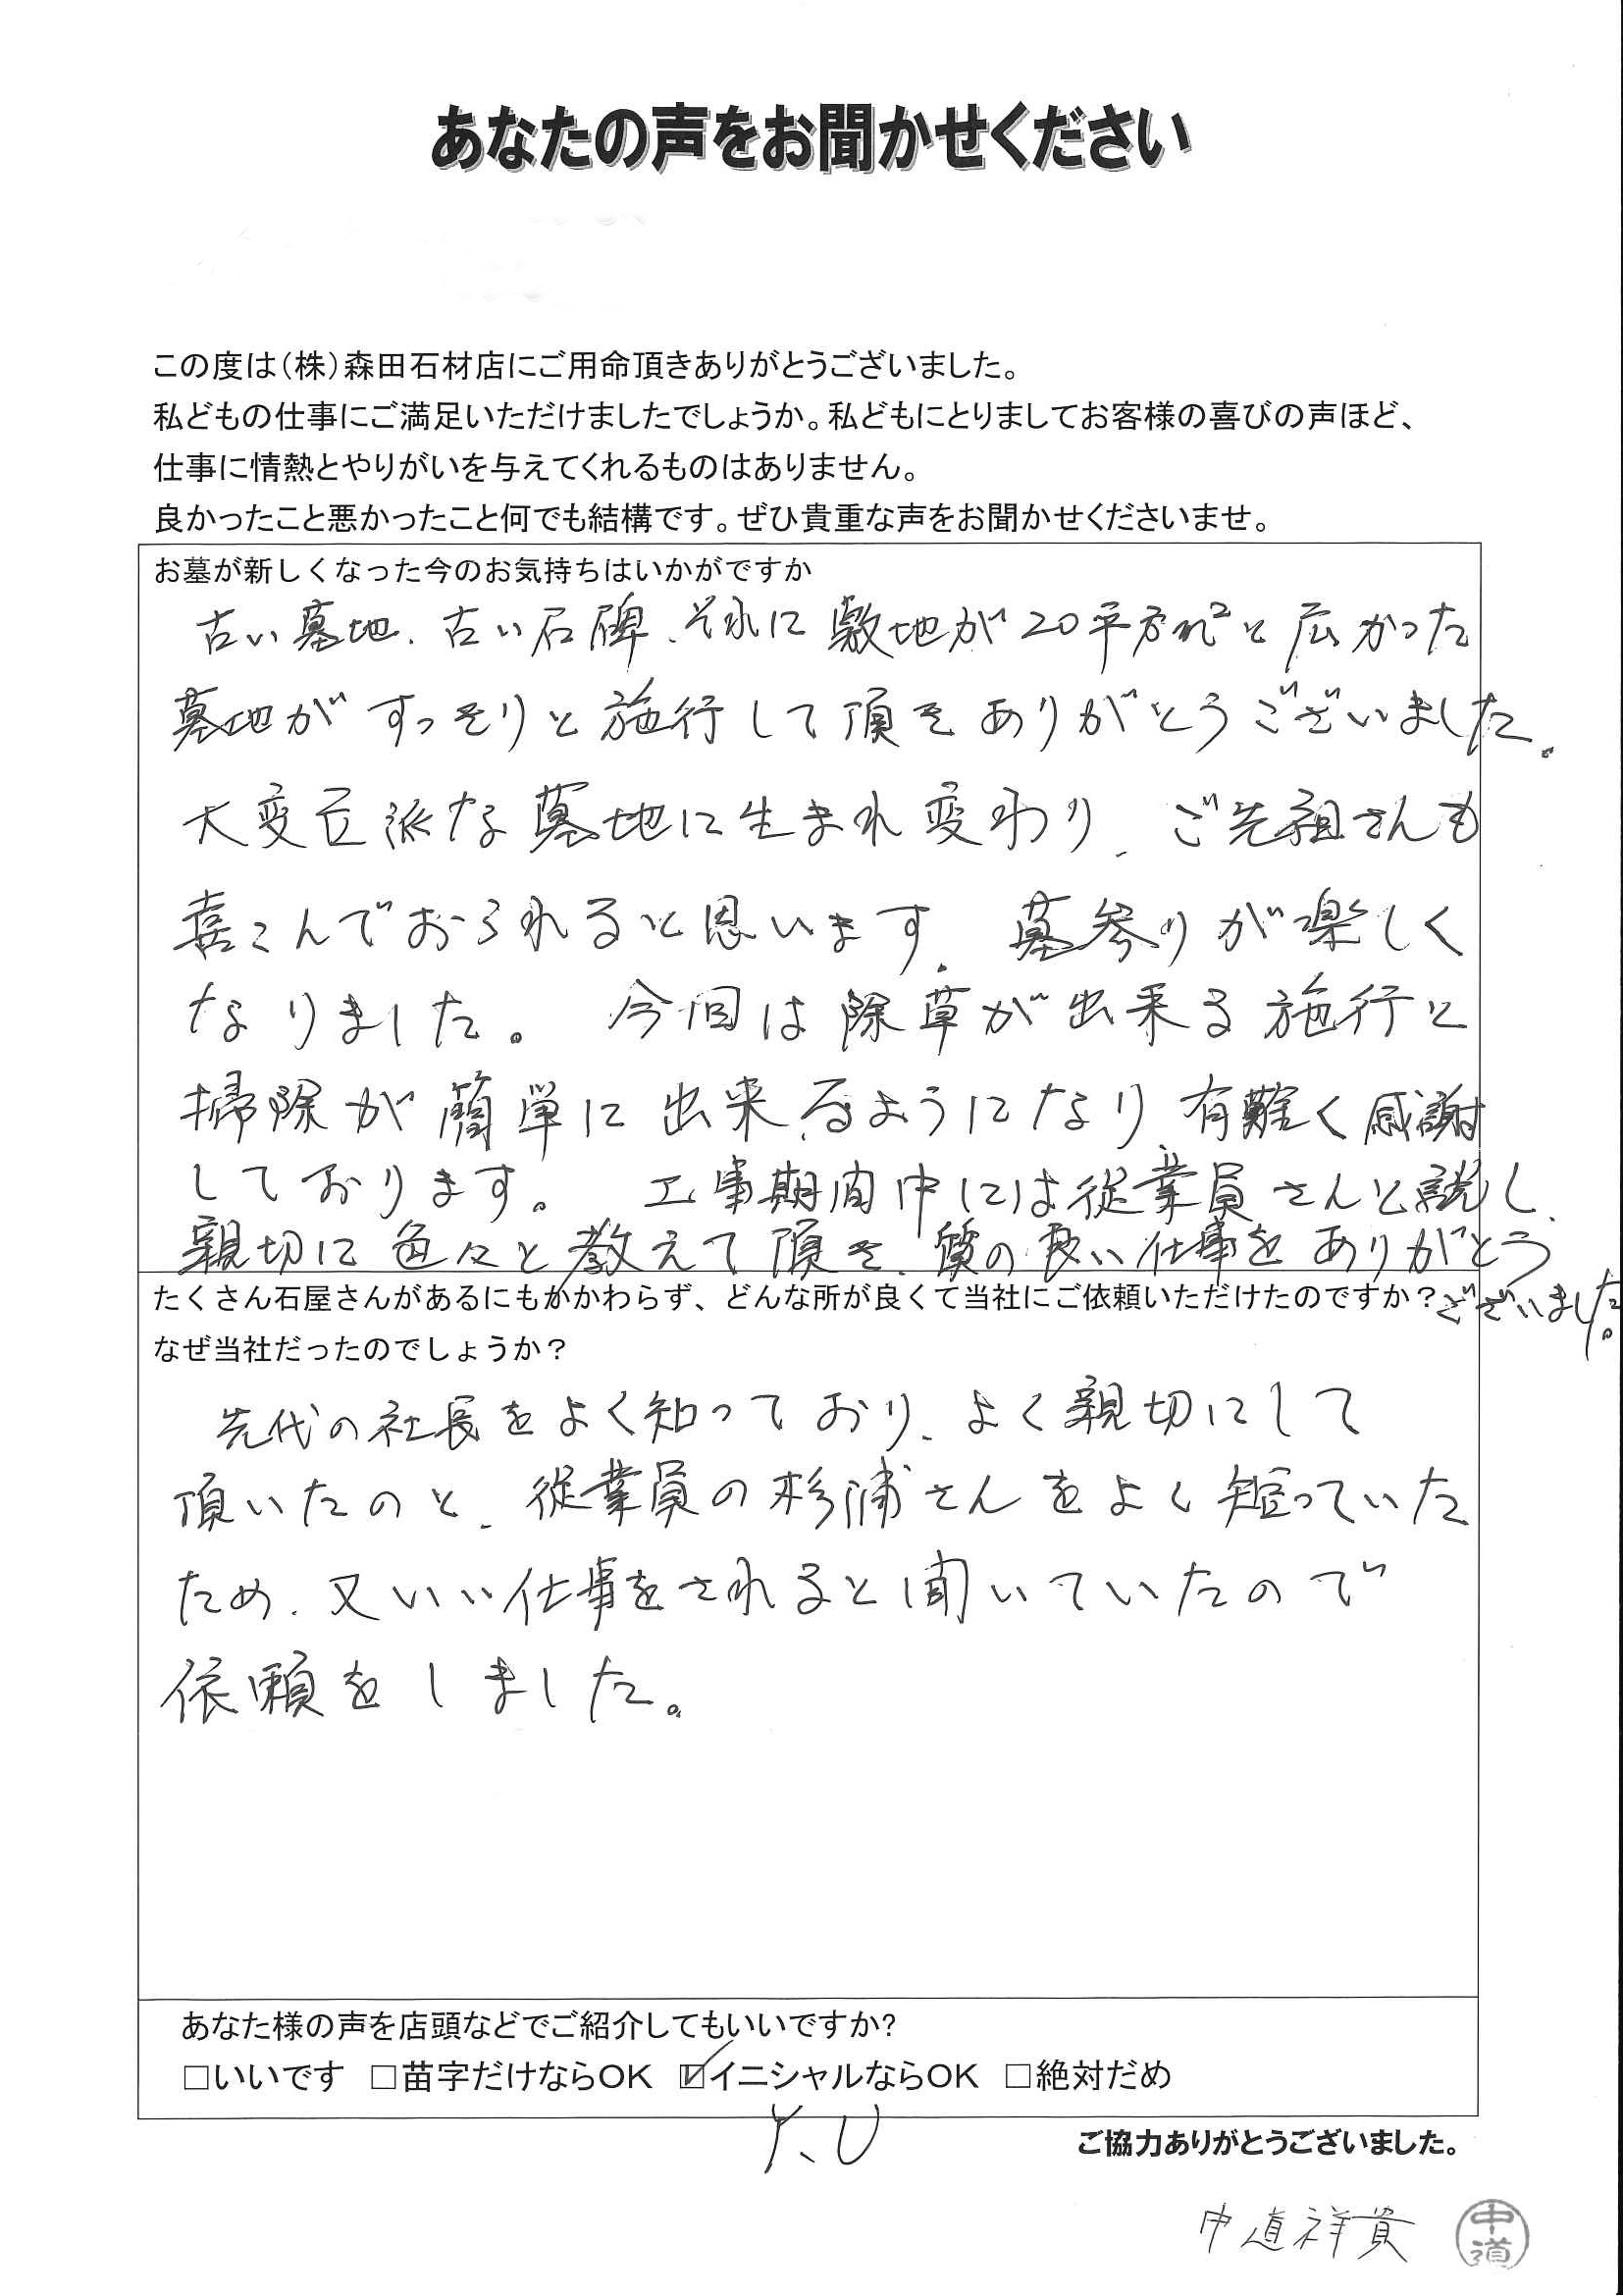 あなたの声をお聞かせください
この度は(株)森田石材店にご用命頂きありがとうございました。
私どもの仕事にご満足いただけましたでしょうか。私どもにとりましてお客様の喜びの声ほど、
仕事に情熱とやりがいを与えてくれるものはありません。
良かったこと悪かったこと何でも結構です。ぜひ貴重な声をお聞かせくださいませ。
お墓が新しくなった今のお気持ちはいかがですか
古い墓地、古い石碑、それに敷地が20平方m²と広かった
墓地がすっきりと施行して頂きありがとうございました。
大変立派な墓地に生まれ変わり、ご先祖さんも
喜こんでおられると思います。墓参りが楽しく
なりました。今回は除草が出来る施行と
掃除が簡単に出来るようになり、有難く感謝
しております。工事期間中には従業員さんと説し、
親切に色々と教えて頂き、質の良い仕事をありがとう
ございました。
たくさん石屋さんがあるにもかかわらず、どんな所が良くて当社にご依頼いただけたのですか?
なぜ当社だったのでしょうか?
先代の社長をよく知っており、よく親切にして
頂いたのと、従業員の杉浦さんをよく知っていた
ため、又いい仕事をされると聞いていたので
依頼をしました。
あなた様の声を店頭などでご紹介してもいいですか?
□いいです □苗字だけならOK ☑イニシャルならOK □絶対だめ
Y.U
ご協力ありがとうございました。
中道祥貴
中道